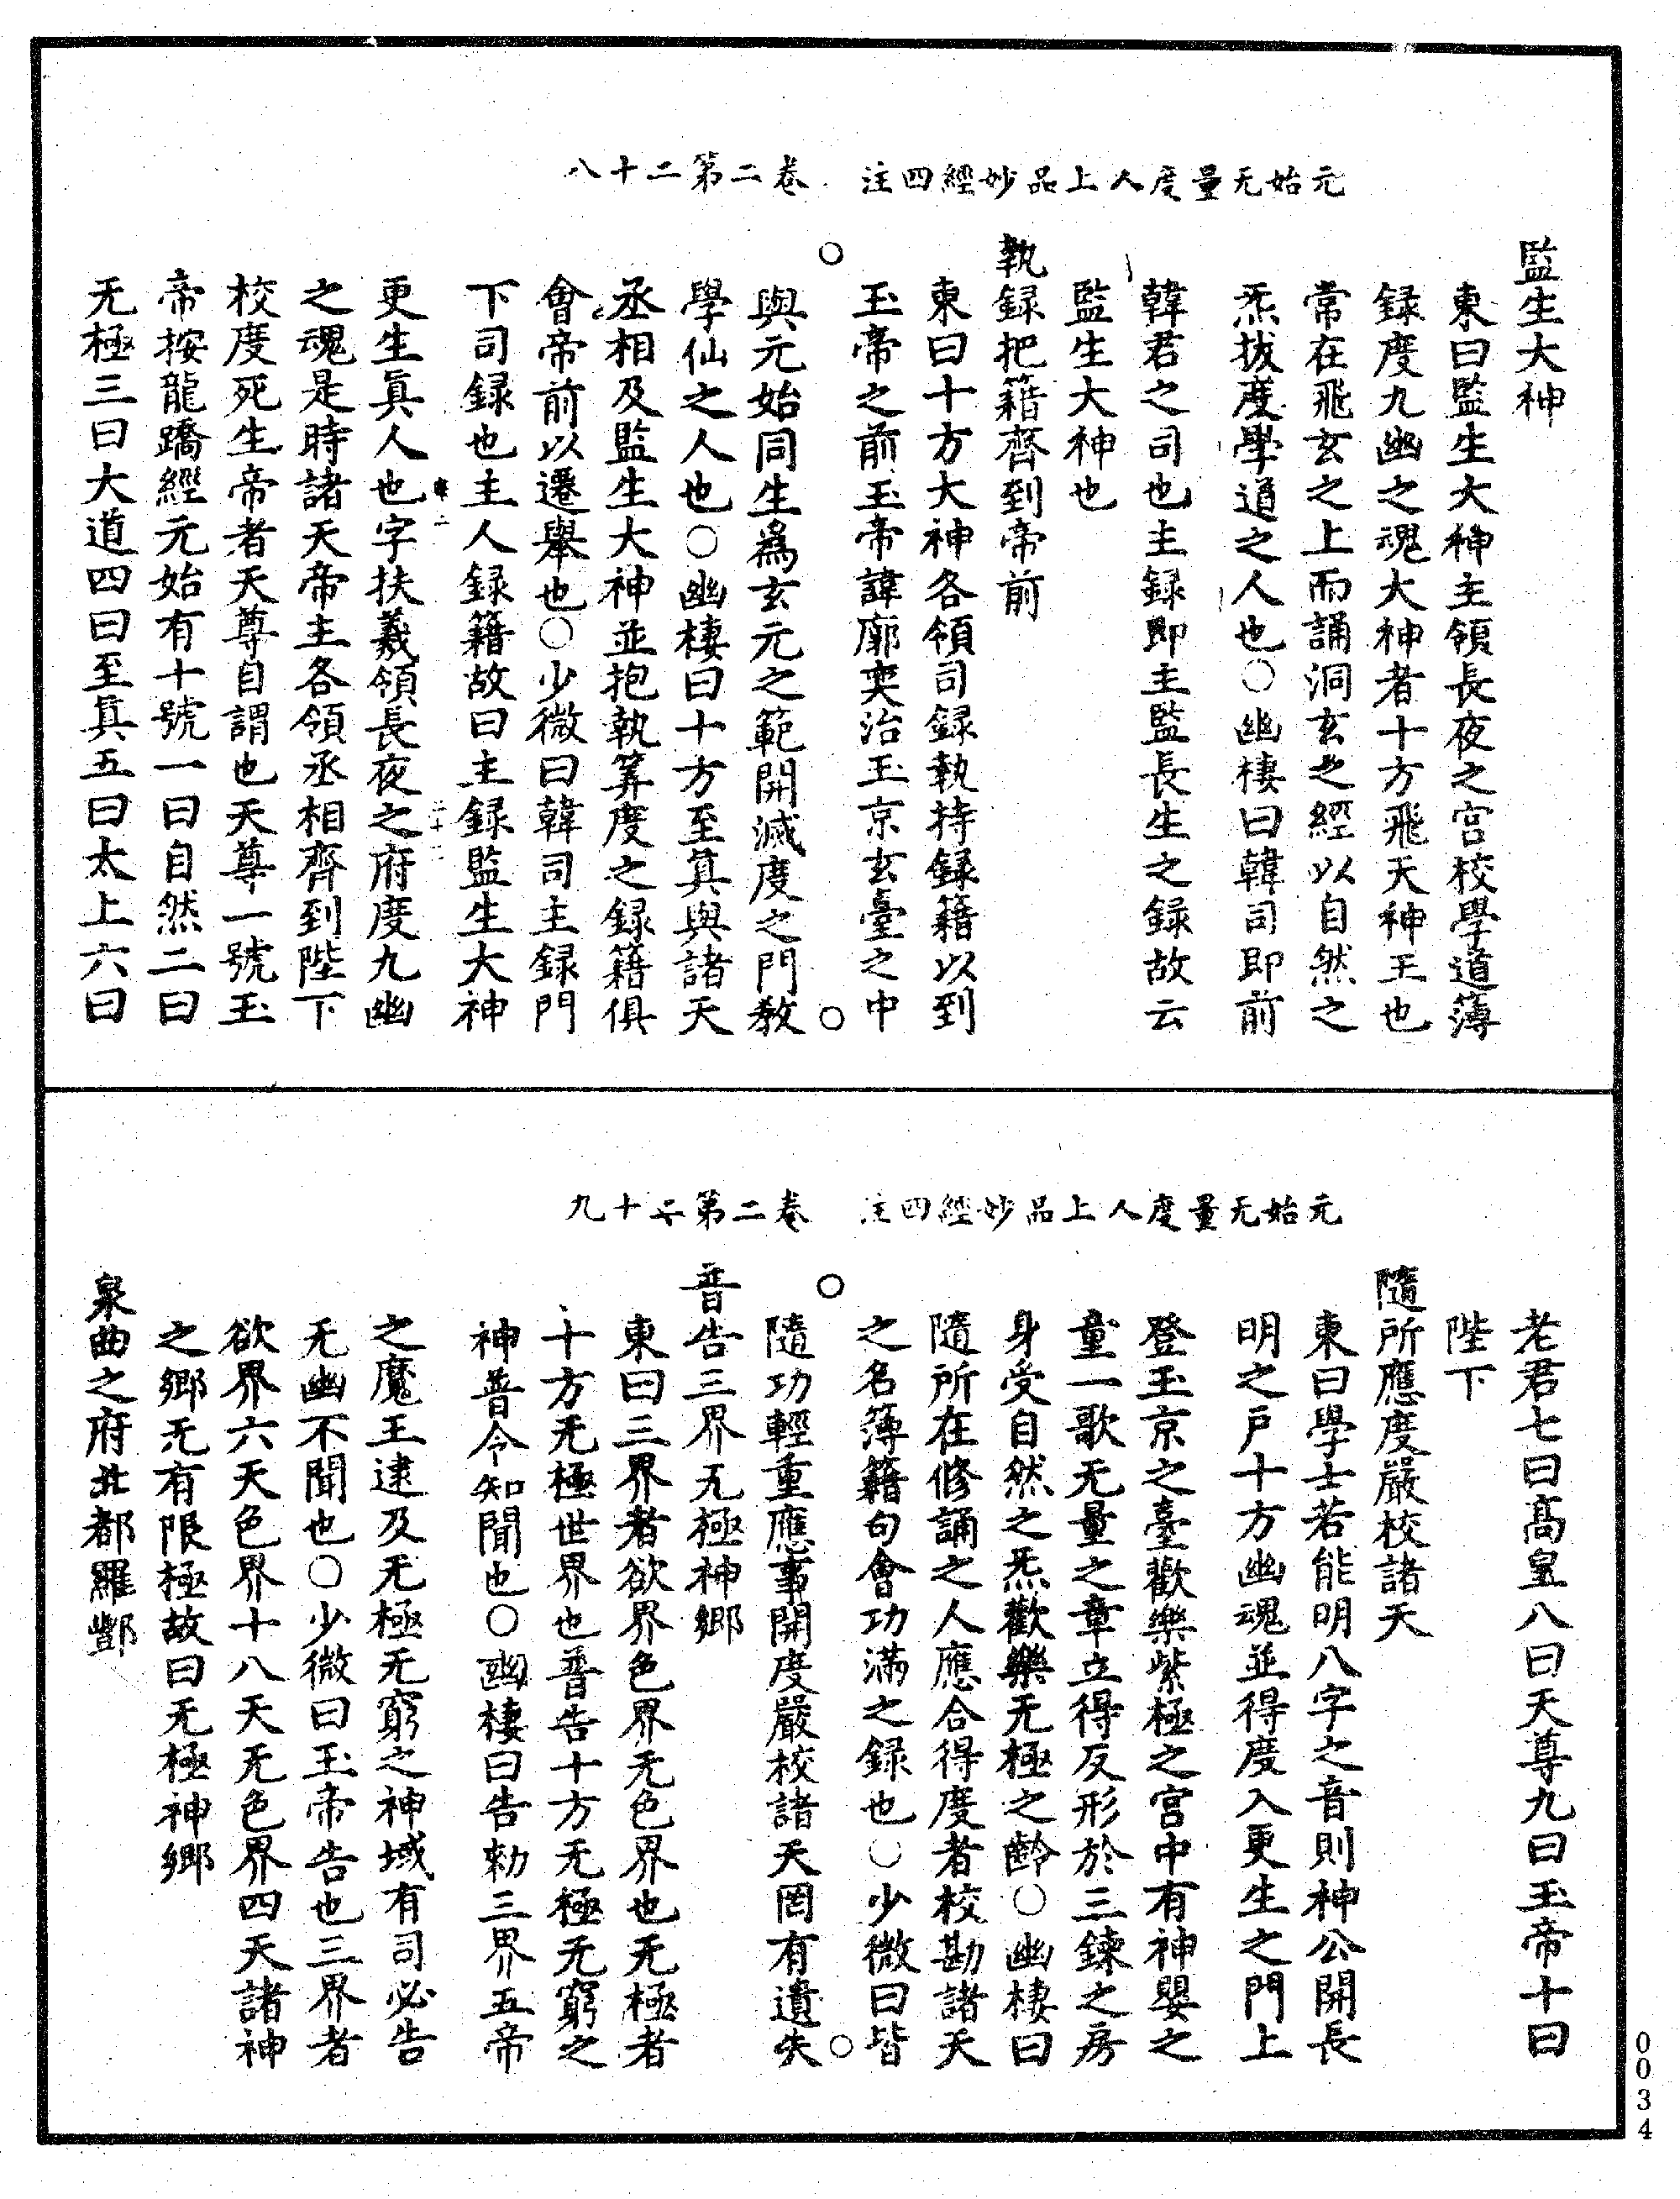 元始无量度人上品妙經四注　卷二第二十八
監生大神
東曰監生大神主領長夜之宮校學道簿
録度九幽之魂大神者十方飛天神王也
常在飛玄之上而誦洞玄之經以自然之
炁拔度學道之人也○幽棲曰韓司即前
韓君之司也主録即主監長生之録故云
監生大神也
執録把籍齊到帝前
東曰十方大神各領司録執持録籍以到
玉帝之前玉帝諱廓奕治玉京玄臺之中
與元始同生爲玄元之範開滅度之門教
學仙之人也○幽棲曰十方至真與諸天
丞相及監生大神並抱執筭度之録籍俱
會帝前以遷舉也○少微曰韓司主録門
下司録也主人録籍故曰主録監生大神
更生真人也字扶羲領長夜之府度九幽
之魂是時諸天帝主各領丞相齊到陛下
校度死生帝者天尊自謂也天尊一號玉
帝按龍蹻經元始有十號一曰自然二曰
无極三曰大道四曰至真五曰太上六曰
元始无量度人上品妙經四注　卷二第二十九
老君七曰高皇八曰天尊九曰玉帝十曰
陛下
隨所應度嚴校諸天
東曰學士若能明八字之音則神公開長
明之戶十方幽魂並得度入更生之門上
登玉京之臺歡樂紫極之宮中有神嬰之
童一歌无量之章立得反形於三鍊之房
身受自然之炁歡樂无極之齡○幽棲曰
隨所在修誦之人應合得度者校勘諸天
之名簿籍句會功滿之録也○少微曰皆
隨功輕重應事開度嚴校諸天罔有遺失
普告三界无極神鄉
東曰三界者欲界色界无色界也无極者
十方无極世界也普告十方无極无窮之
神普令知聞也○幽棲曰告勑三界五帝
之魔王逮及无極无窮之神域有司必告
无幽不聞也○少微曰玉帝告也三界者
欲界六天色界十八天无色界四天諸神
之鄉无有限極故曰无極神鄉
泉曲之府北都羅酆
0034